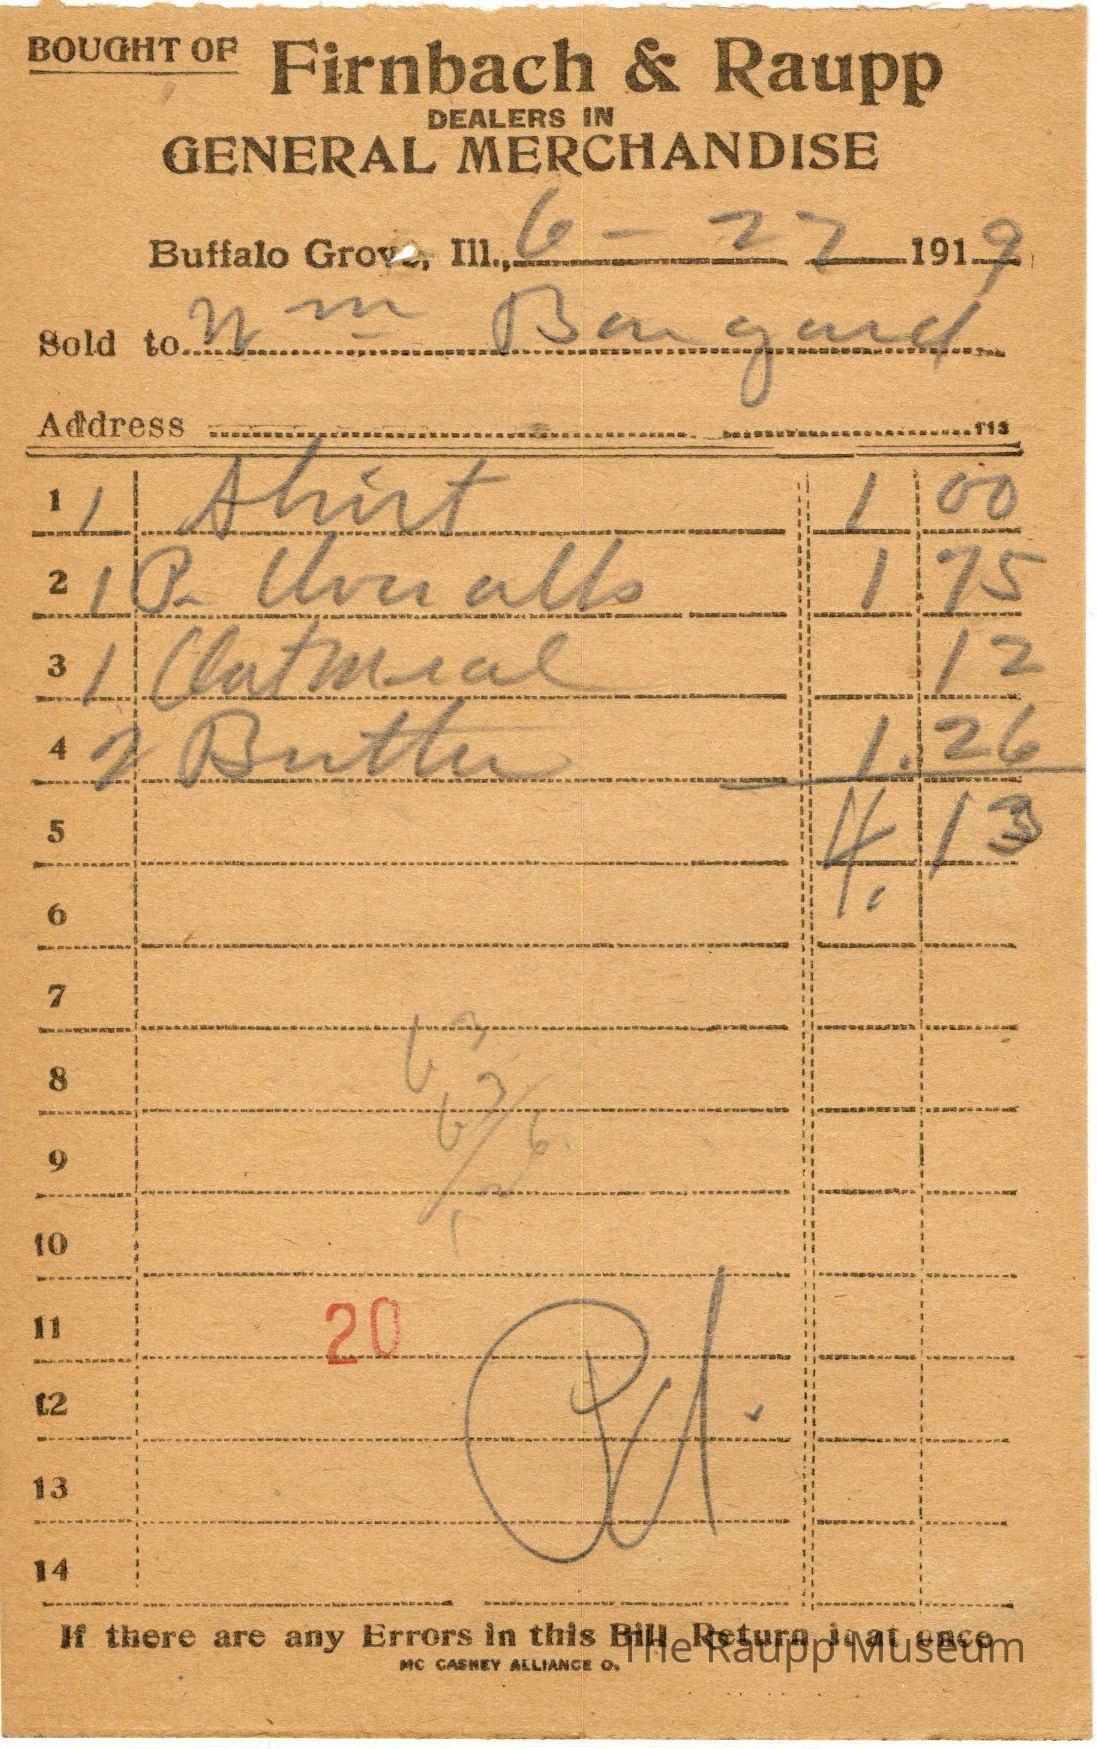 BOUGHT OF Firnbach & Raupp
DEALERS IN
GENERAL MERCHANDISE
Buffalo Grove, Ill., 6 - 27 1919
Sold to Wm Bongard
Address 113
1 1 Shirt 1 00
2 1 P. Overalls 1 75
3 1 Oatmeal 12
4 2 Butter 1.26
5 4.13
6
7
63
8
63/6
9
1 2
10
11 20
12
Pd.
13
14
If there are any Errors in this Bill Return it at once
MC CASKEY ALLIANCE O.
The Raupp Museum